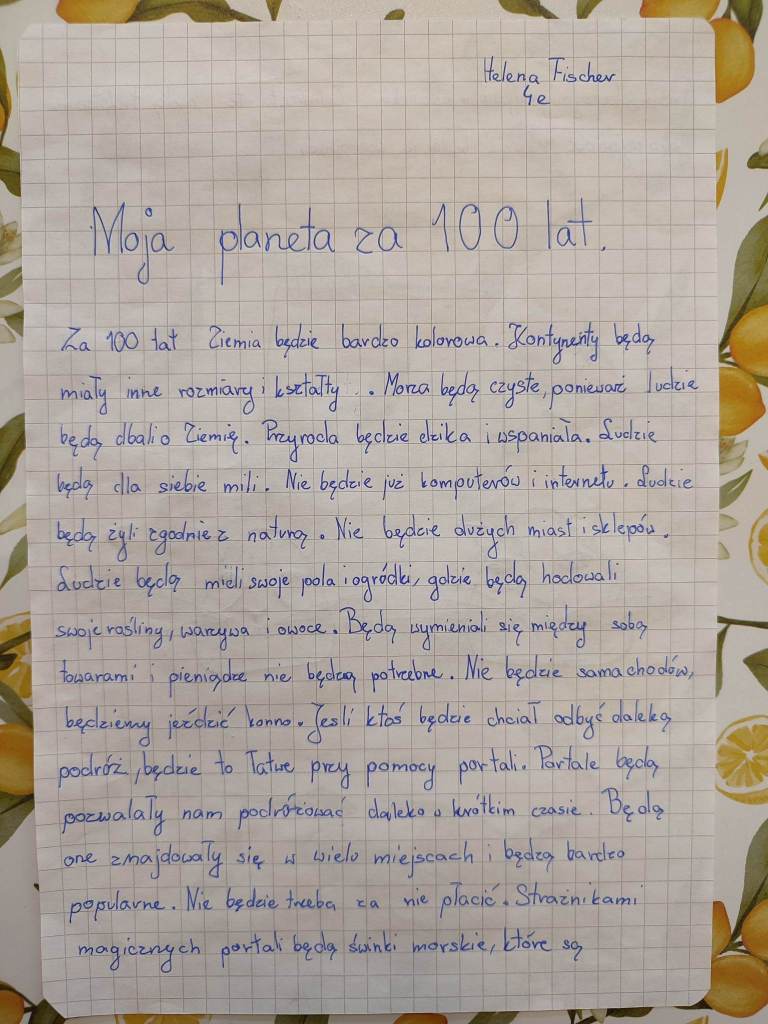 Helena Fischer
4e
Moja planeta za 100 lat.
Za 100 lat Ziemia będzie bardzo kolorowa. Kontynenty będą
miały inne rozmiary i kształty. Morza będą czyste, ponieważ ludzie
będą dbali o Ziemię. Przyroda będzie dzika i wspaniała. Ludzie
będą dla siebie mili. Nie będzie już komputerów i internetu. Ludzie
będą żyli zgodnie z naturą. Nie będzie dużych miast i sklepów.
Ludzie będą mieli swoje pola i ogródki, gdzie będą hodowali
swoje rośliny, warzywa i owoce. Będą wymieniali się między sobą
towarami i pieniądze nie będzą potrzebne. Nie będzie samachodów,
będziemy jeździć konno. Jeśli ktoś będzie chciał odbyć daleką
podróż, będzie to łatwe przy pomocy portali. Portale będą
pozwalały nam podróżować daleko w krótkim czasie. Będą
one znajdowały się w wielu miejscach i będzą bardzo
popularne. Nie będzie trzeba za nie płacić. Strażnikami
magicznych portali będą świnki morskie, które są